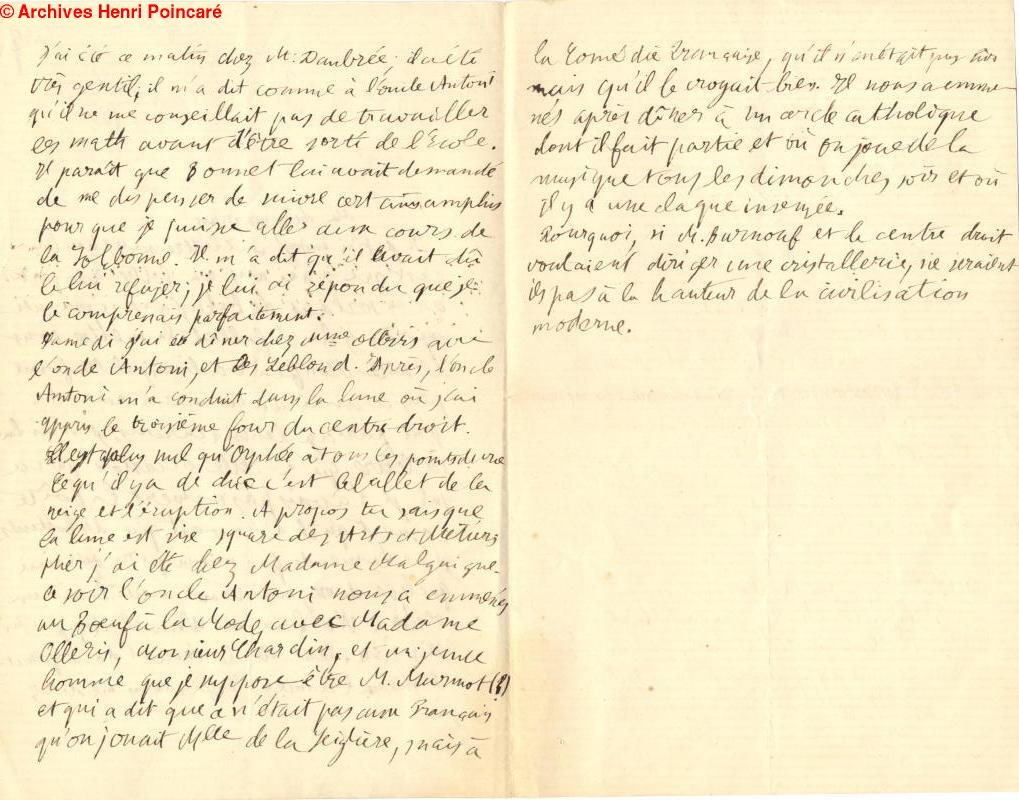 © Archives Henri Poincaré
J'ai été ce matin chez M. Daubrée; il a été
très gentil; il m'a dit comme à l'oncle Antoni
qu'il ne me conseillait pas de travailler
les math avant d'être sorti de l'Ecole.
Il paraît que Bonnet lui avait demandé
de me dispenser de suivre cert amphis
pour que je puisse aller aux cours de
la Sorbonne. Il m'a dit qu'il avait dû
le lui refuser; je lui ai répondu que je
le comprenais parfaitement.
Samedi j'ai été dîner chez Mme Olleris avec
l'oncle Antoni, et les Leblond. Après, l'oncle
Antoni m'a conduit dans la lune où j'ai
appris le troisième four du centre droit.
Il est plus nul qu'Orphée à tous les points de vue
Ce qu'il y a de chic c'est le ballet de la
neige et l'éruption. A propos tu sais que
la lune est square des Arts et Métiers
Hier j'ai été chez Madame
ce soir l'oncle Antoni nous a emmenés
au Bœuf à la Mode, avec Madame
Olleris, Monsieur Chardin, et un jeune
homme que je suppose être M. Murmot(?)
et qui a dit que ce n'était pas aux Français
qu'on jouait Mlle de la Seiglière, mais à
la Comédie Française, qu'il n'en était pas sûr
mais qu'il le croyait bien. Il nous a emme
nés après dîner à un cercle catholique
dont il fait partie et où on joue de la
musique tous les dimanches soirs et où
il y a une claque insensée.
Pourquoi, si M. Burnouf et le centre droit
voulaient diriger une cristallerie, ne seraient
ils pas à la hauteur de la civilisation
moderne.